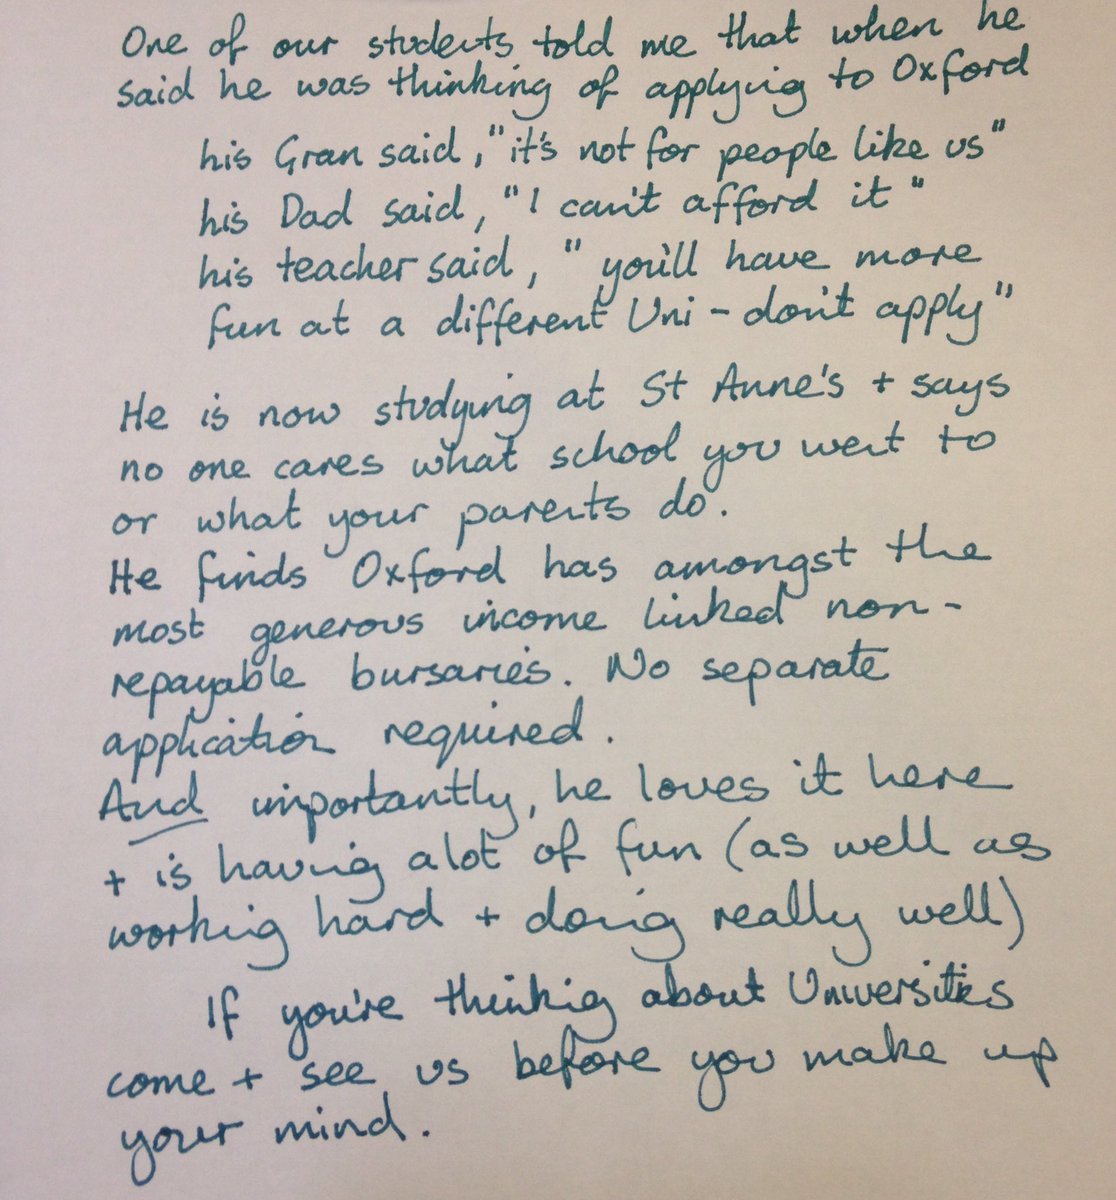 One of our students told me that when he
said he was thinking of applying to Oxford
his Gran said, "it's not for people like us"
his Dad said, "I can't afford it"
his teacher said, "you'll have more
fun at a different Uni - don't apply"
He is now studying at St Anne's + says
no one cares what school you went to
or what your parents do.
He finds Oxford has amongst the
most generous income linked non-
repayable bursaries. No separate
application required.
And importantly, he loves it here
+ is having a lot of fun (as well as
working hard + doing really well)
If you're thinking about Universities
come + see us before you make up
your mind.